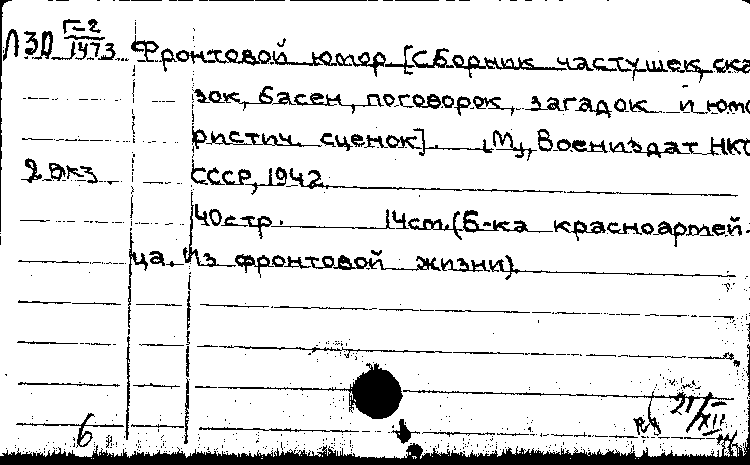 Л30 Г-2/1473 Фронтовой юмор [Сборник частушек, ска
зок, басен, поговорок, загадок и юмо
ристич. сценок]. [М], Воениздат НКО
2 экз. СССР, 1942.
40стр. 14см.(Б-ка красноармей-
ца. Из фронтовой жизни).
21/XII
6